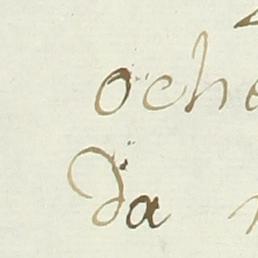 oche
da